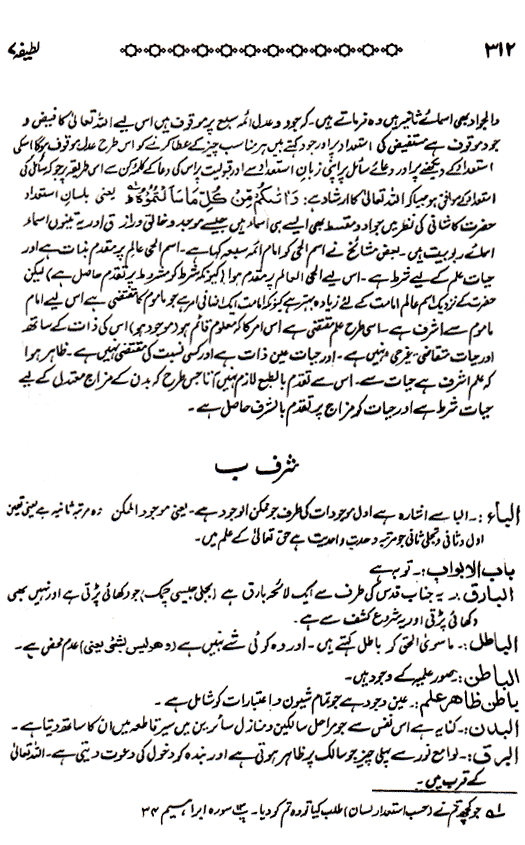 ۳۱۲ لطیفہ ۷
والجواد بھی اسمائے شانیہ ہیں وہ فرماتے ہیں۔ کہ جود و عدل ائمہ سبع پر موقوف ہیں اس لیے اللہ تعالیٰ کا فیض و
جود موقوف ہے مستفیض کی استعداد پر اور جود کہتے ہیں ہر مناسب چیز کے عطا کرنے کو اس طرح عدل موقوف ہوگا اسکی
استعداد کے دیکھنے پر اور دعائے سائل پر اپنی زبان استعداد سے اور قبولیت پر اس کی دعا کے کلمہ کن سے اس طریقہ پر جو کہ سائل کی
استعداد کے موافق ہو جیسا کہ اللہ تعالیٰ کا ارشاد ہے: وَاٰتٰىكُمْ مِّنْ كُلِّ مَا سَاَلْتُمُوْهُ یعنی بلسان استعداد
حضرت کاشانی کی نظر میں جواد و مقسط بھی ایسے ہی اسماء ہیں جیسے موجد و خالق و رازق اور یہ تینوں اسماء
اسمائے ربوبیت ہیں۔ بعض مشائخ نے اسم الحی کو امام ائمہ سبعہ کہا ہے۔ اسم الحی عالم پر مقدم بذات ہے اور
حیات علم کے لیے شرط ہے۔ اس لیے الحی العالم پر مقدم ہوا (کیونکہ شرط کو مشروط پر تقدم حاصل ہے) لیکن
حضرت کے نزدیک اسم عالم امامت کے لئے زیادہ بہتر ہے کیونکہ امامت ایک اضافی امر ہے جو ماموم کا مقتضی ہے اس لیے امام
ماموم سے اشرف ہے۔ اسی طرح علم مقتضی ہے اس امر کا کہ معلوم قائم ہو (موجود ہو) اس کی ذات کے ساتھ
اور حیات متقاضی غیر حی نہیں ہے۔ اور حیات عین ذات ہے اور کسی نسبت کی مقتضی نہیں ہے۔ ظاہر ہوا
کہ علم اشرف ہے حیات سے۔ اس سے تقدم بالطبع لازم نہیں آتا جس طرح کہ بدن کے مزاج معتدل کے لیے
حیات شرط ہے اور حیات کو مزاج پر تقدم بالشرف حاصل ہے۔
شرف ب
الباء:۔ البا سے اشارہ ہے اول موجودات کی طرف جو ممکن الوجود ہے۔ یعنی موجود الممکن وہ مرتبہ ثانیہ ہے یعنی تعین
اول و ثانی و تجلی ثانی جو مرتبہ وحدت و احدیت ہے حق تعالیٰ کے علم میں۔
باب الابواب:۔ توبہ ہے
البارق:۔ یہ جناب قدس کی طرف سے ایک لائحہ بارق ہے (بجلی جیسی چمک) جو دکھائی پڑتی ہے اور نہیں بھی
دکھائی پڑتی اور یہ شروع کشف سے ہے۔
الباطل:۔ ماسوی الحق کو باطل کہتے ہیں۔ اور وہ کوئی شے نہیں ہے (وھو لیس بشئی یعنی) عدم محض ہے۔
الباطن:۔ صور علمیہ کے وجود ہیں۔
باطن ظاھر علم:۔ عین وجود ہے جو تمام شیون و اعتبارات کو شامل ہے۔
البدن:۔ کنایہ ہے اس نفس سے جو مراحل سالکین و منازل سائرین میں سیر قاطعہ میں ان کا ساتھ دیتا ہے۔
البرق:۔ لوامع نور سے پہلی چیز جو سالک پر ظاہر ہوتی ہے اور بندہ کو دخول کی دعوت دیتی ہے۔ اللہ تعالیٰ
کے قرب میں۔
۱ جو کچھ تم نے (حسب استعداد لسان) طلب کیا تو وہ تم کو دیا۔ پ ۱۳ سورہ ابراہیم ۳۴